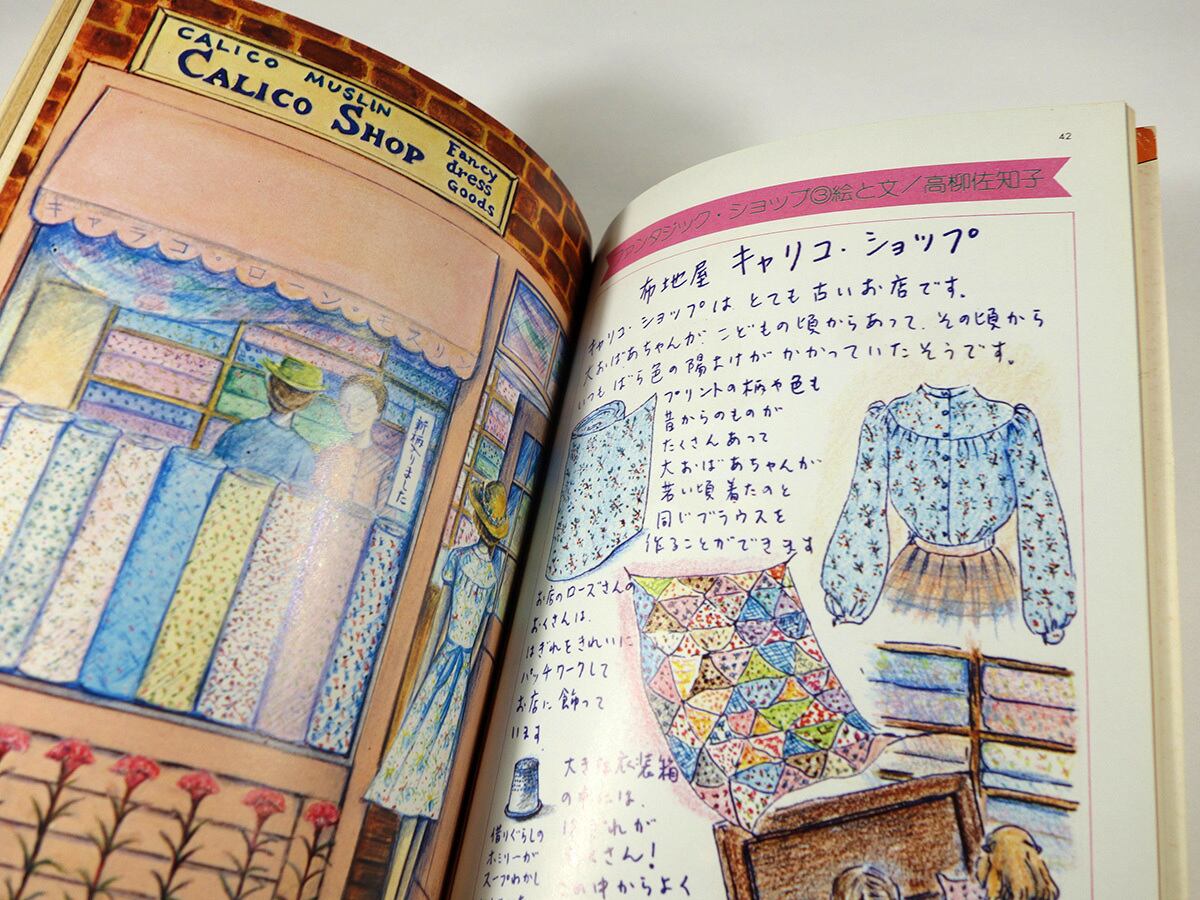 CALICO MUSLIN
CALICO SHOP
Fancy
dress
Goods
キャラコ・ローン・モスリン
新柄入りました
42
ファンタジック・ショップ③絵と文／高柳佐知子
布地屋 キャリコ・ショップ
キャリコ・ショップは とても古いお店です。
大おばあちゃんが、こどもの頃からあって、その頃から
いつもばら色の陽よけが かかっていたそうです。
プリントの柄や色も
昔からのものが
たくさんあって
大おばあちゃんが
若い頃着たのと
同じブラウスを
作ることができます
お店のローズさんの
おくさんは、
はぎれをきれいに
パッチワークして
お店に飾って
います
大きな衣装箱
の中には、
はぎれが
たくさん!
この中からよく
借りぐらしの
ホミリーが
スープわかし